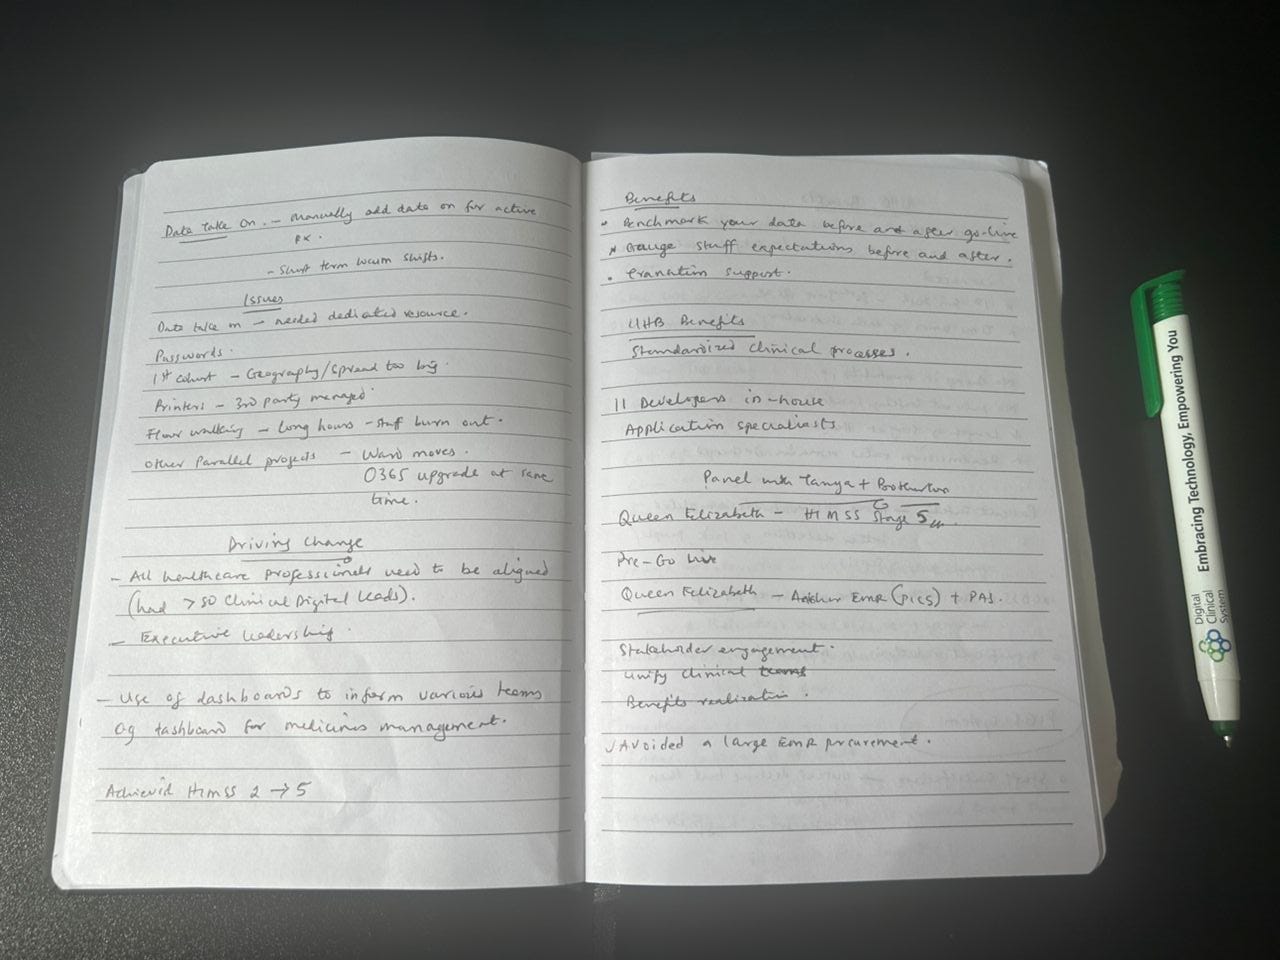 Data Take On. - Manually add data on for active
px.
- Short term locum shifts.
Issues
Data take on - needed dedicated resource.
Passwords.
1st cohort - Geography/spread too big.
Printers - 3rd party managed
Floor walking - long hours - staff burn out.
Other Parallel projects - Ward moves.
O365 upgrade at same
time.
Driving Change
- All healthcare professionals need to be aligned
(had >50 Clinical Digital Leads).
- Executive leadership.
- Use of dashboards to inform various teams
eg dashboard for medicines management.
Achieved HIMSS 2 → 5
Benefits
• Benchmark your data before and after go-live
* Gauge staff expectations before and after.
• support.
UHB Benefits
Standardized clinical processes.
11 Developers in-house
Application specialists
Panel with Tanya +
Queen Elizabeth - HIMSS Stage 5
Pre-Go Live
Queen Elizabeth - Another EMR (PICS) + PAS.
Stakeholder engagement.
Unify clinical teams
Benefits realization.
✓ Avoided a large EMR procurement.
Digital
Clinical
System
Embracing Technology, Empowering You